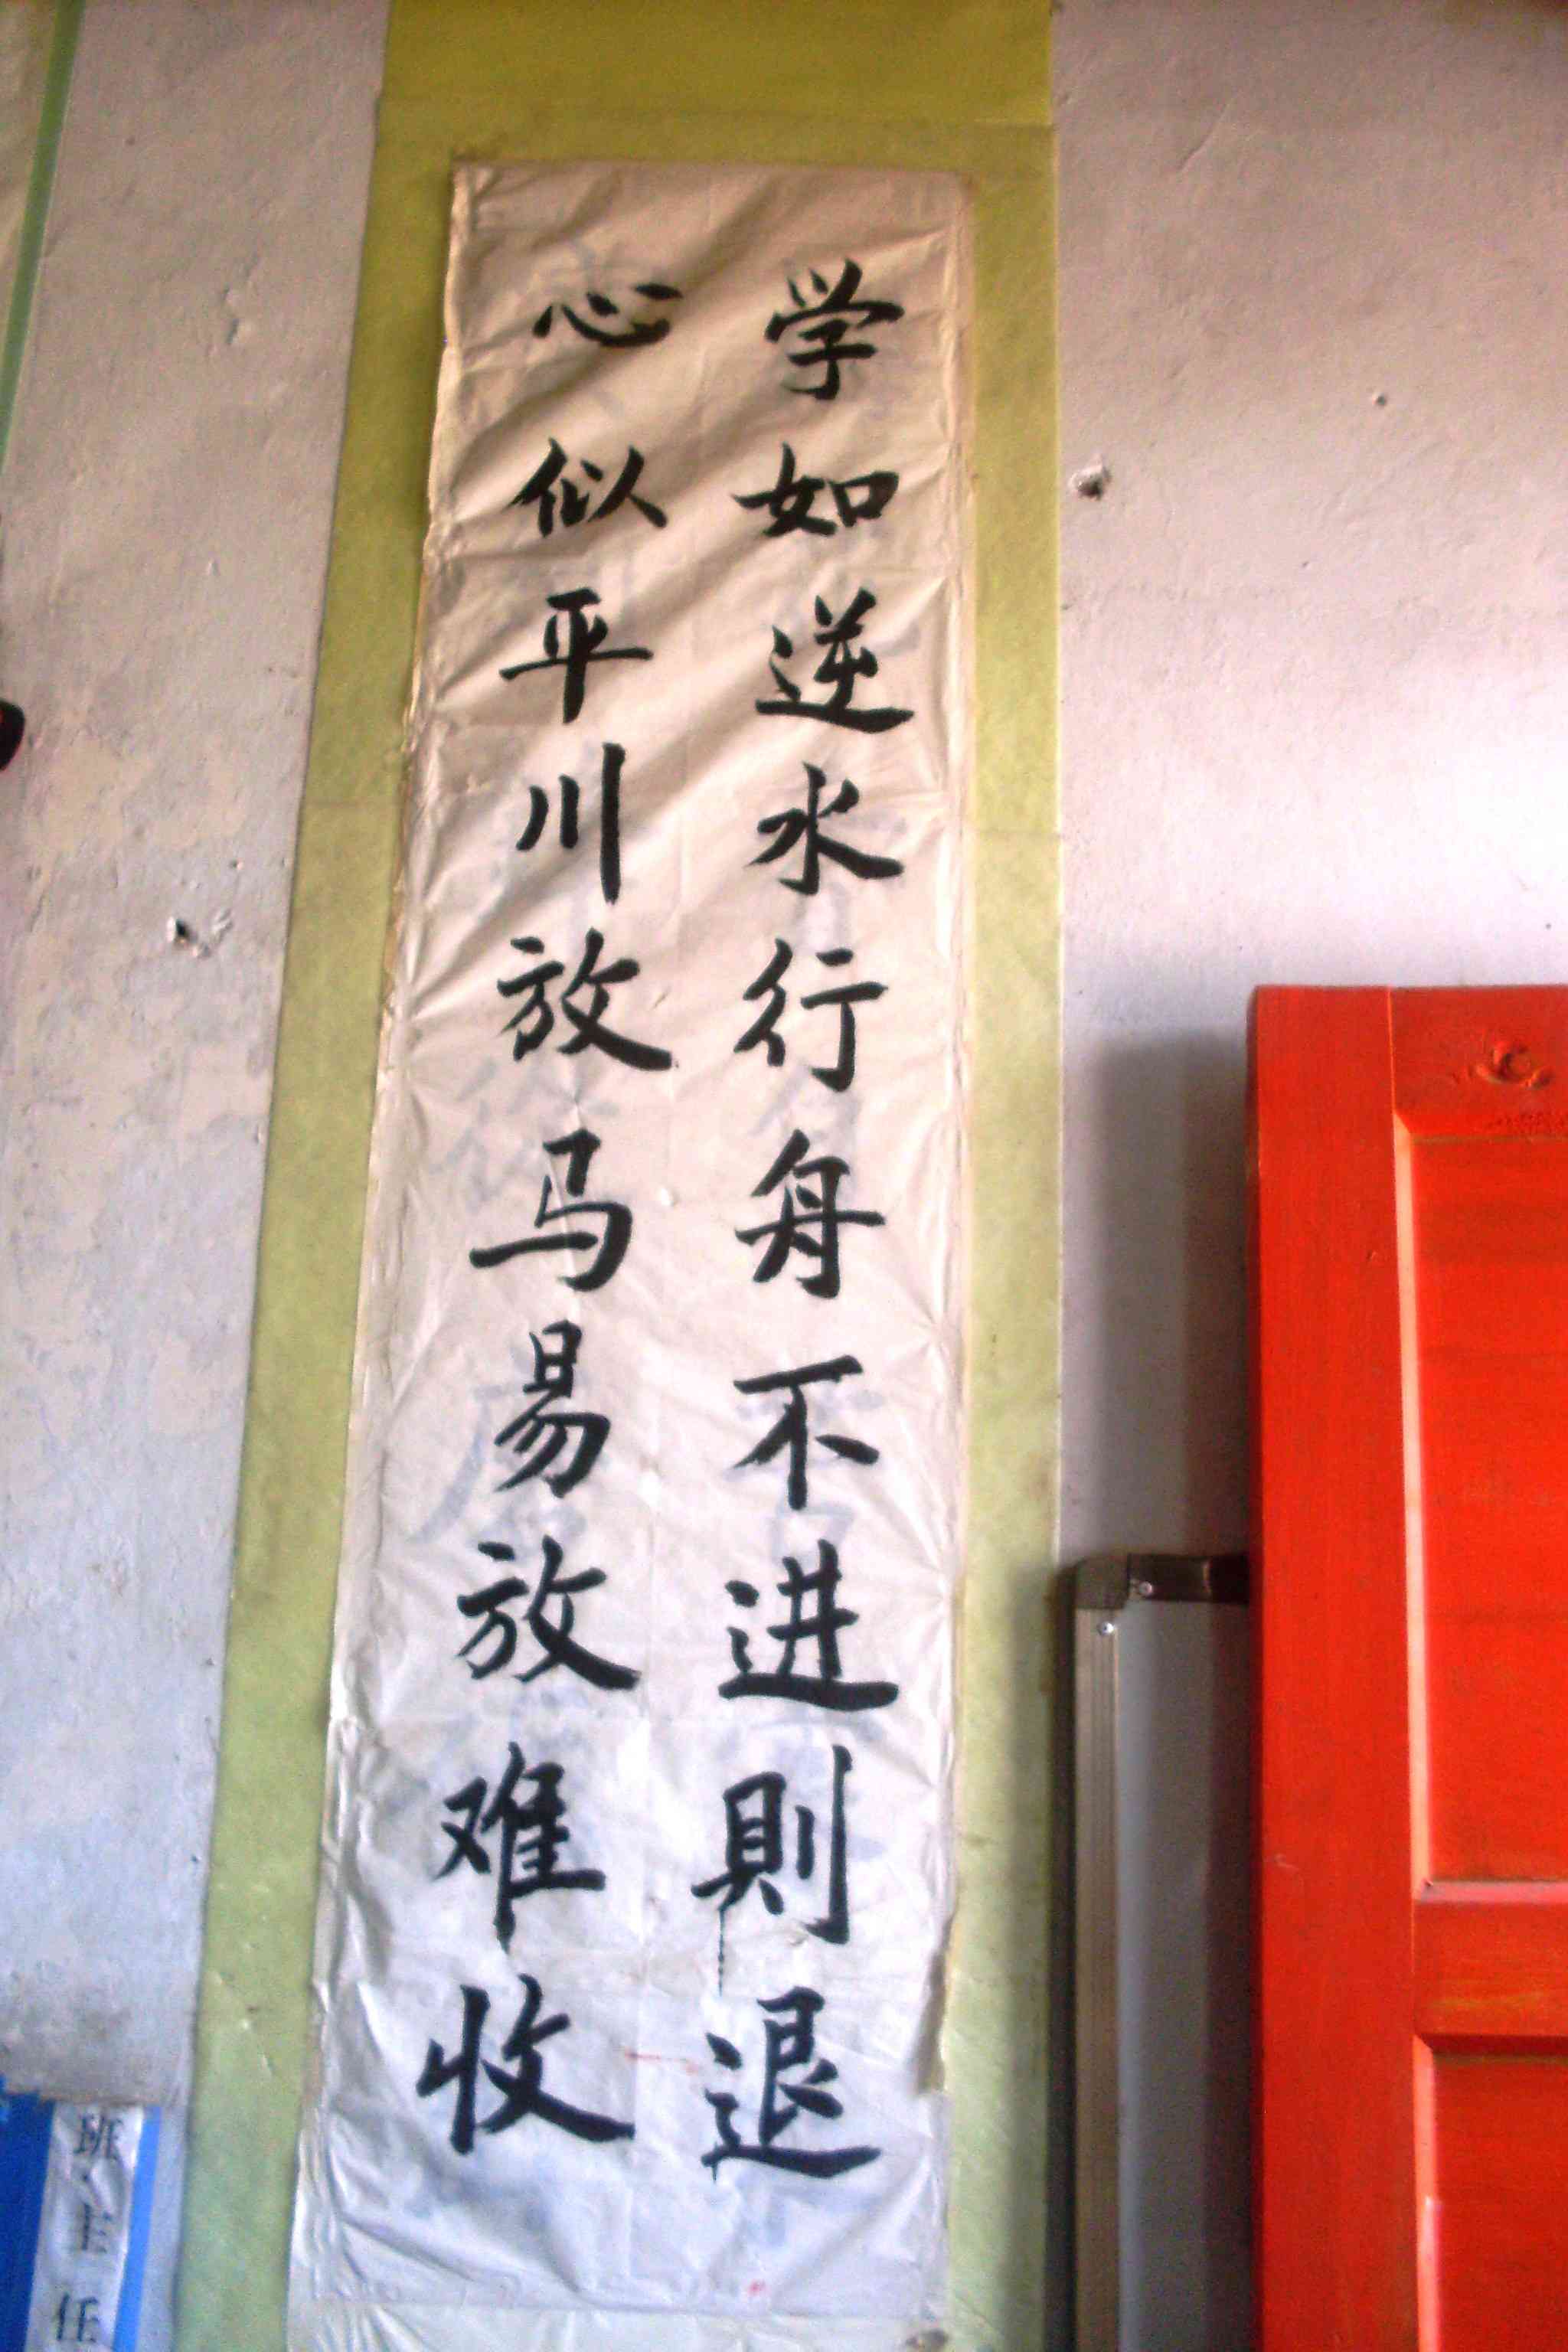 学如逆水行舟不进則退
心似平川放马易放难收
班主任